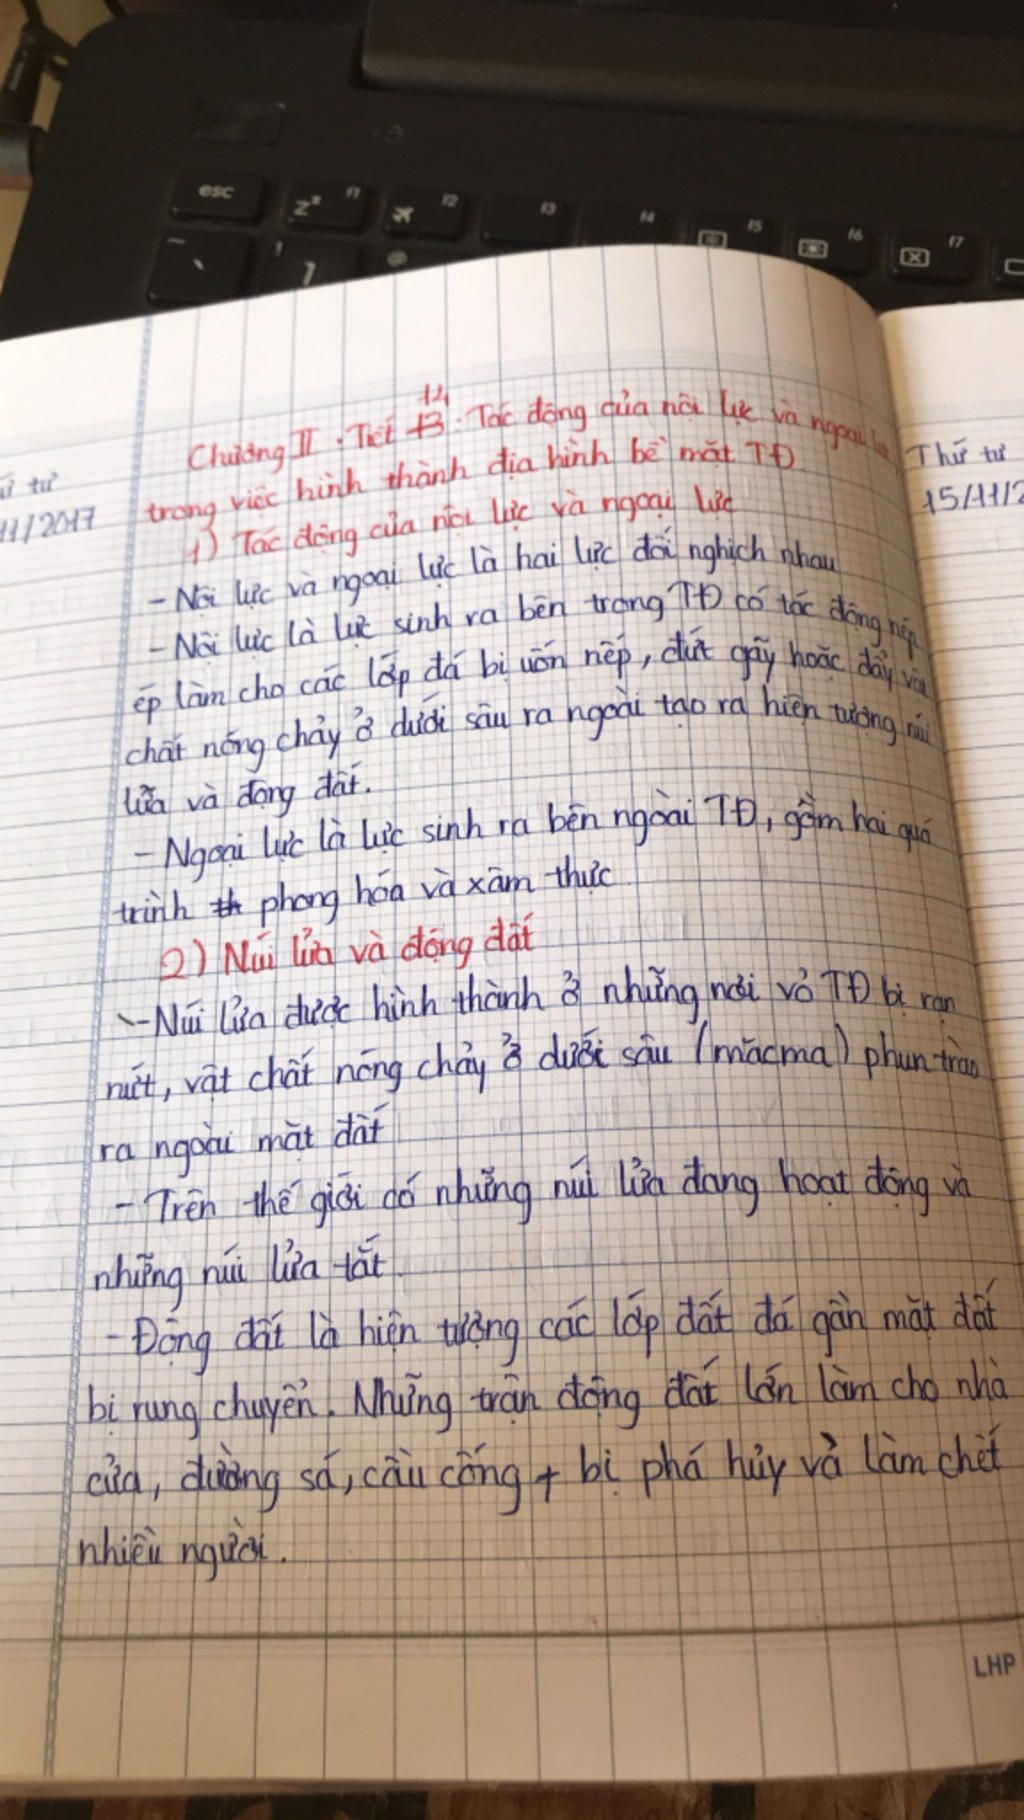 esc
f1
f2
f3
f4
f5
f6
f7
z
1
tư
11/2017
14
Chương II: Tiết 13: Tác động của nội lực và ngoại lực
trong việc hình thành địa hình bề mặt TĐ
1) Tác động của nội lực và ngoại lực
- Nội lực và ngoại lực là hai lực đối nghịch nhau
- Nội lực là lực sinh ra bên trong TĐ có tác động nép
ép làm cho các lớp đá bị uốn nếp, đứt gãy hoặc đẩy vật
chất nóng chảy ở dưới sâu ra ngoài tạo ra hiện tượng núi
lửa và động đất.
- Ngoại lực là lực sinh ra bên ngoài TĐ, gồm hai quá
trình th phong hóa và xâm thực
2) Núi lửa và động đất
- Núi lửa được hình thành ở những nơi vỏ TĐ bị rạn
nứt, vật chất nóng chảy ở dưới sâu (măcma) phun trào
ra ngoài mặt đất
- Trên thế giới có những núi lửa đang hoạt động và
những núi lửa tắt
- Động đất là hiện tượng các lớp đất đá gần mặt đất
bị rung chuyển. Những trận động đất lớn làm cho nhà
cửa, đường sá, cầu cống + bị phá hủy và làm chết
nhiều người.
LHP
Thứ tư
15/11/2